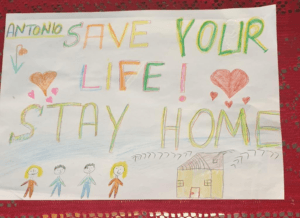 ANTONIO SAVE YOUR
LIFE!
STAY HOME